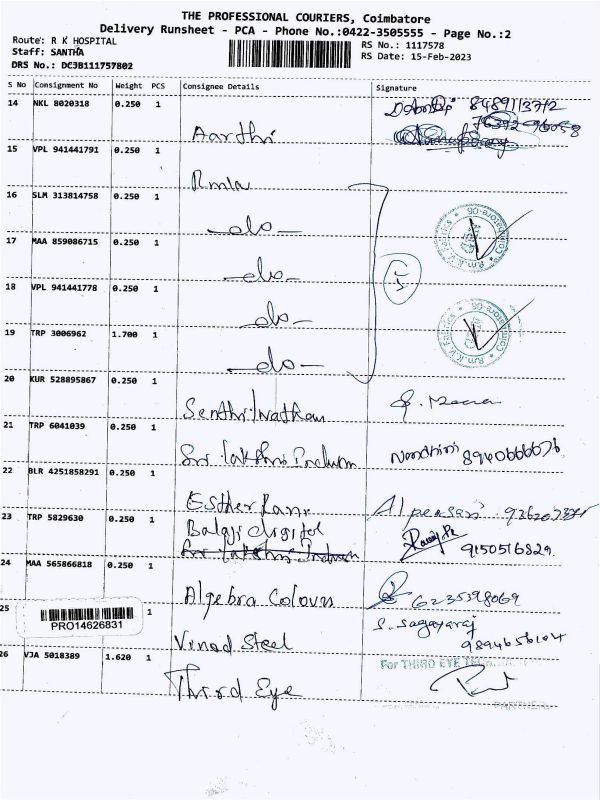 THE PROFESSIONAL COURIERS, Coimbatore
Delivery Runsheet - PCA - Phone No.:0422-3505555 - Page No.:2
Route: R K HOSPITAL
Staff: SANTHA
DRS No.: DCJB111757802
RS No.: 1117578
RS Date: 15-Feb-2023
S No Consignment No Weight PCS Consignee Details Signature
14 NKL 8020318 0.250 1 Aardhi 8489113712
15 VPL 941441791 0.250 1 Rmla
16 SLM 313814758 0.250 1 -do-
17 MAA 859086715 0.250 1 -do-
18 VPL 941441778 0.250 1 -do-
19 TRP 3006962 1.700 1 -do-
5
Rm.K.V. Fabrics Coimbatore-06
Rm.K.V. Fabrics Coimbatore-06
20 KUR 528895867 0.250 1 Senthilnathan
21 TRP 6041039 0.250 1 Sri lakshmi Nandhini 8940666676
22 BLR 4251858291 0.250 1 Esther Rani
23 TRP 5829630 0.250 1 Balaji digital 9150516829
24 MAA 565866818 0.250 1 Algebra Colours 6235398069
25 PRO14626831 1 Vinod Steel S. Sagayaraj 9894656104
26 VJA 5018389 1.620 1 Third Eye
For THIRD EYE